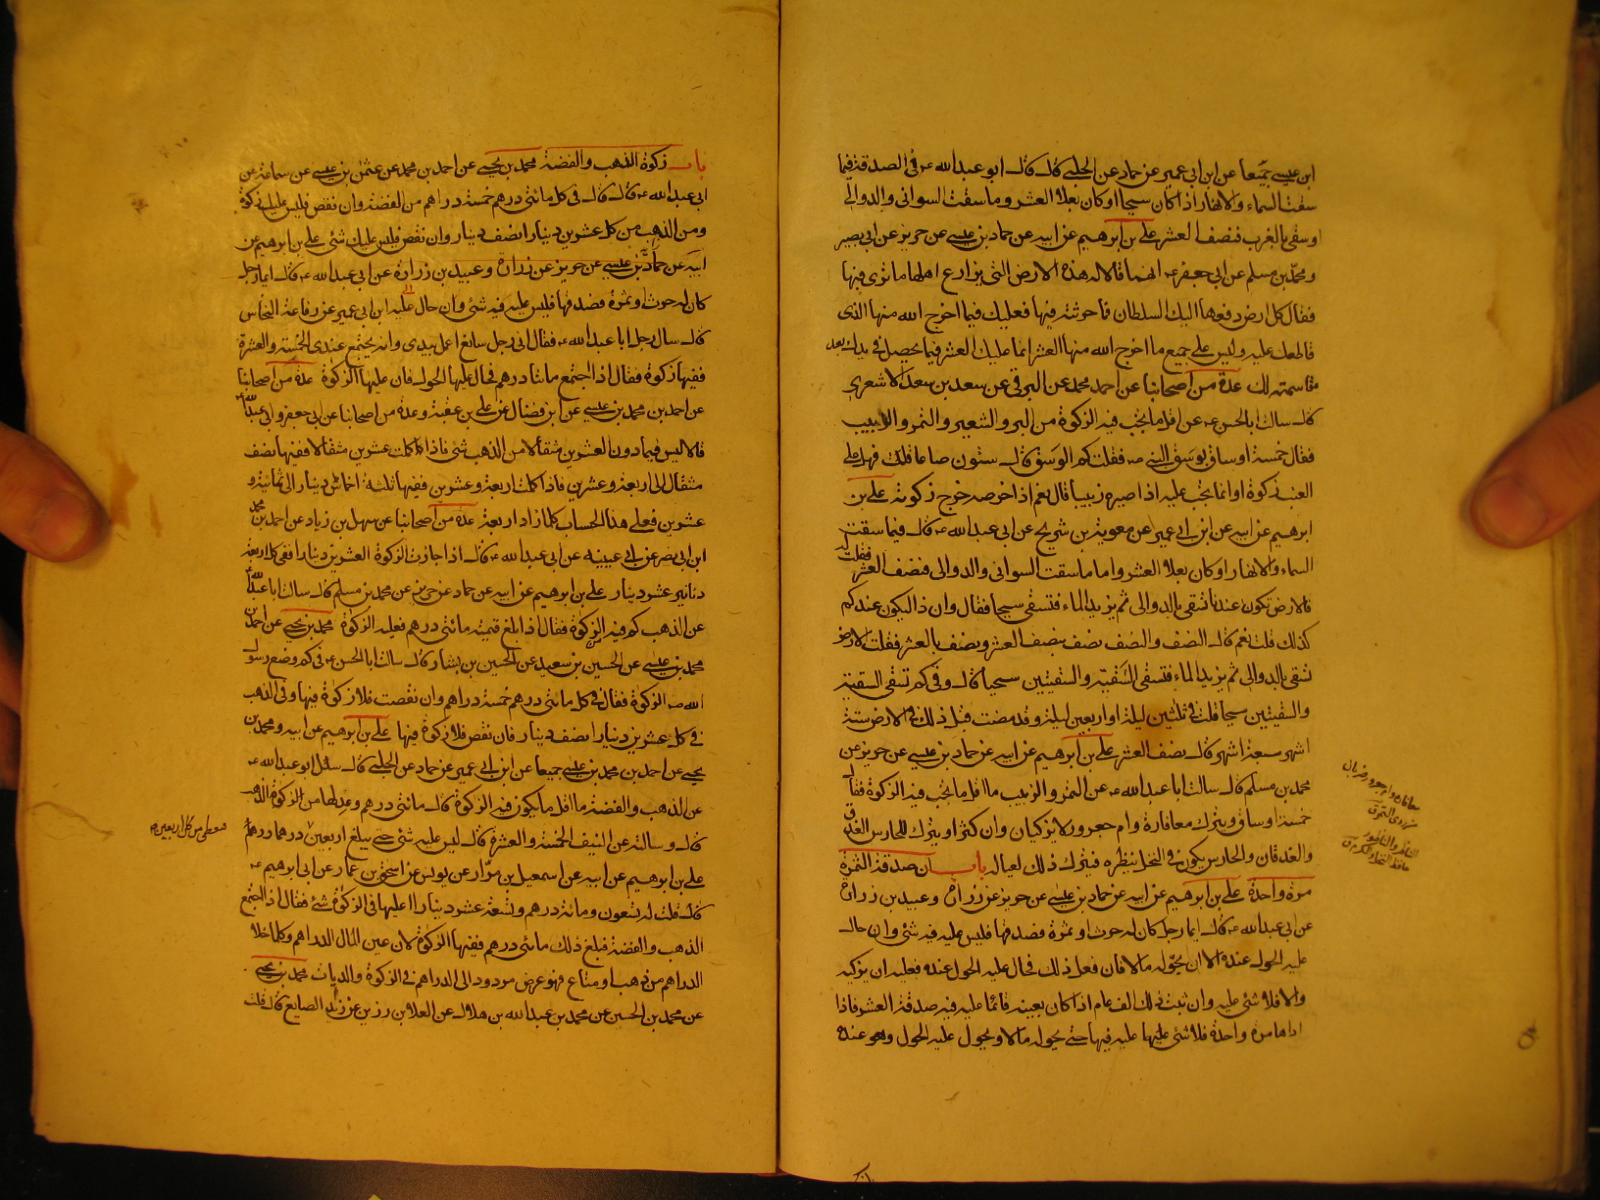 ابن عيسى جميعا عن ابن ابي عمير عن حماد عن الحلبي قال قال ابو عبد الله ع في الصدقة فيما
سقت السماء والانهار اذا كان سيحا او كان بعلا العشر وما سقت السواني والدوالي
او سقى بالغرب فنصف العشر علي بن ابرهيم عن ابيه عن حماد بن عيسى عن حريز عن ابي بصير
ومحمد بن مسلم عن ابي جعفر ع انهما قالا له هذه الارض التي يزارع اهلها ما ترى فيها
فقال كل ارض دفعها اليك السلطان فما حرثته فيها فعليك فيما اخرج الله منها الذي
قاطعك عليه وليس على جميع ما اخرج الله منها العشر انما عليك العشر فيما يحصل في يدك بعد
مقاسمته لك عدة من اصحابنا عن احمد بن محمد عن البرقي عن سعد بن سعد الاشعري
قال سالت ابا الحسن ع عن اقل ما يجب فيه الزكوة من البر والشعير والتمر والزبيب
فقال خمسة اوساق بوسق النبي ص فقلت كم الوسق قال ستون صاعا قلت فهل على
العنب زكوة او انما تجب عليه اذا صيره زبيبا قال نعم اذا خرصه خرج زكوته علي بن
ابرهيم عن ابيه عن ابن ابي عمير عن معوية بن شريح عن ابي عبد الله ع قال فيما سقت
السماء والانهار او كان بعلا العشر واما ما سقت السواني والدوالي فنصف العشر فقلت له
فالارض تكون عندنا تسقى بالدوالي ثم يزيد الماء فتسقى سيحا فقال وان ذا ليكون عندكم
كذلك قلت نعم قال النصف والنصف نصف بنصف العشر ونصف بالعشر فقلت الارض
تسقى بالدوالي ثم يزيد الماء فتسقى السقية والسقيتين سيحا قال وفي كم تسقى السقية
والسقيتين سيحا قلت في ثلثين ليلة او اربعين ليلة وقد مضت قبل ذلك في الارض ستة
اشهر سبعة اشهر قال نصف العشر علي بن ابرهيم عن ابيه عن حماد بن عيسى عن حريز عن
محمد بن مسلم قال سالت ابا عبد الله ع عن التمر والزبيب ما اقل ما يجب فيه الزكوة فقال
خمسة اوساق ويترك معافارة وام جعرور لا يزكيان وان كثرا ويترك للحارس العذق
والعذقان والحارس يكون في النخل ينظره فيترك ذلك لعياله باب ان صدقة الثمرة
مرة واحدة علي بن ابرهيم عن ابيه عن حماد بن عيسى عن حريز عن زرارة وعبيد بن زرارة
عن ابي عبد الله ع قال ايما رجل كان له حرث او ثمرة فصدقها فليس عليه فيه شئ وان حال
عليه الحول عنده الا ان يحوله مالا فان فعل ذلك فحال عليه الحول عنده فعليه ان يزكيه
والا فلا شئ عليه وان ثبت ذلك الف عام اذا كان بعينه فانما عليه فيه صدقة العشر فاذا
اداها مرة واحدة فلا شئ عليها عليه فيها حتى يحوله مالا ويحول عليه الحول وهو عنده
باب زكوة الذهب والفضة محمد بن يحيى عن احمد بن محمد عن عثمن بن عيسى عن سماعة عن
ابي عبد الله ع قال قال في كل مائتي درهم خمسة دراهم من الفضة وان نقص فليس عليك زكوة
ومن الذهب من كل عشرين دينارا نصف دينار وان نقص فليس عليك شئ علي بن ابرهيم عن
ابيه عن حماد بن عيسى عن حريز عن زرارة وعبيد بن زرارة عن ابي عبد الله ع قال ايما رجل
كان له حرث او ثمرة فصدقها فليس عليه فيه شئ وان حال عليه ابن ابي عمير عن رفاعة النخاس
قال سال رجل ابا عبد الله ع فقال اني رجل صايغ اعمل بيدي وانه يجتمع عندي الخمسة والعشرة
ففيها زكوة فقال اذا اجتمع مائتا درهم فحال عليها الحول فان عليها الزكوة عدة من اصحابنا
عن احمد بن محمد بن عيسى عن ابن فضال عن علي بن عقبة وعدة من اصحابنا عن ابي جعفر وابي عبد الله
قالا ليس فيما دون العشرين مثقالا من الذهب شئ فاذا كملت عشرين مثقالا ففيها نصف
مثقال الى اربعة وعشرين فاذا كملت اربعة وعشرين ففيها ثلثة اخماس دينار الى ثمانية و
عشرين فعلى هذا الحساب كلما زاد اربعة عدة من اصحابنا عن سهل بن زياد عن احمد بن محمد
ابن ابي نصر عن ابي عيينه عن ابي عبد الله ع قال اذا جازت الزكوة العشرين دينارا ففي كل اربعة
دنانير عشر دينار علي بن ابرهيم عن ابيه عن حماد عن حريز عن محمد بن مسلم قال سالت ابا عبد الله
عن الذهب كم فيه الزكوة فقال اذا بلغ قيمته مائتي درهم فعليه الزكوة محمد بن يحيى عن احمد بن
محمد بن عيسى عن الحسين بن سعيد عن الحسين بن بشار قال سالت ابا الحسن ع في كم وضع رسول
الله ص الزكوة فقال في كل مائتي درهم خمسة دراهم وان نقصت فلا زكوة فيها وفي الذهب
في كل عشرين دينارا نصف دينار فان نقص فلا زكوة فيها علي بن ابرهيم عن ابيه ومحمد بن
يحيى عن احمد بن محمد بن عيسى جميعا عن ابن ابي عمير عن حماد عن الحلبي قال سئل ابو عبد الله ع
عن الذهب والفضة ما اقل ما يكون فيه الزكوة قال مائتي درهم وعدلها من الذهب
قال وسالته عن النيف الخمسة والعشرة قال ليس عليه شئ حتى يبلغ اربعين درهما درهم
علي بن ابرهيم عن ابيه عن اسمعيل بن مرار عن يونس عن اسحق بن عمار عن ابي ابرهيم ع
قال قلت له تسعون ومائة درهم وتسعة عشر دينارا اعليها في الزكوة شئ فقال اذا اجتمع
الذهب والفضة فبلغ ذلك مائتي درهم ففيها الزكوة لان عين المال الدراهم وكلما خلا
الدراهم من ذهب او متاع فهو عرض مردود الى الدراهم في الزكوة والديات محمد بن يحيى
عن محمد بن الحسين عن محمد بن عبد الله بن هلال عن العلا بن رزين عن زيد الصايغ قال قلت
فيعطى من كل اربعين